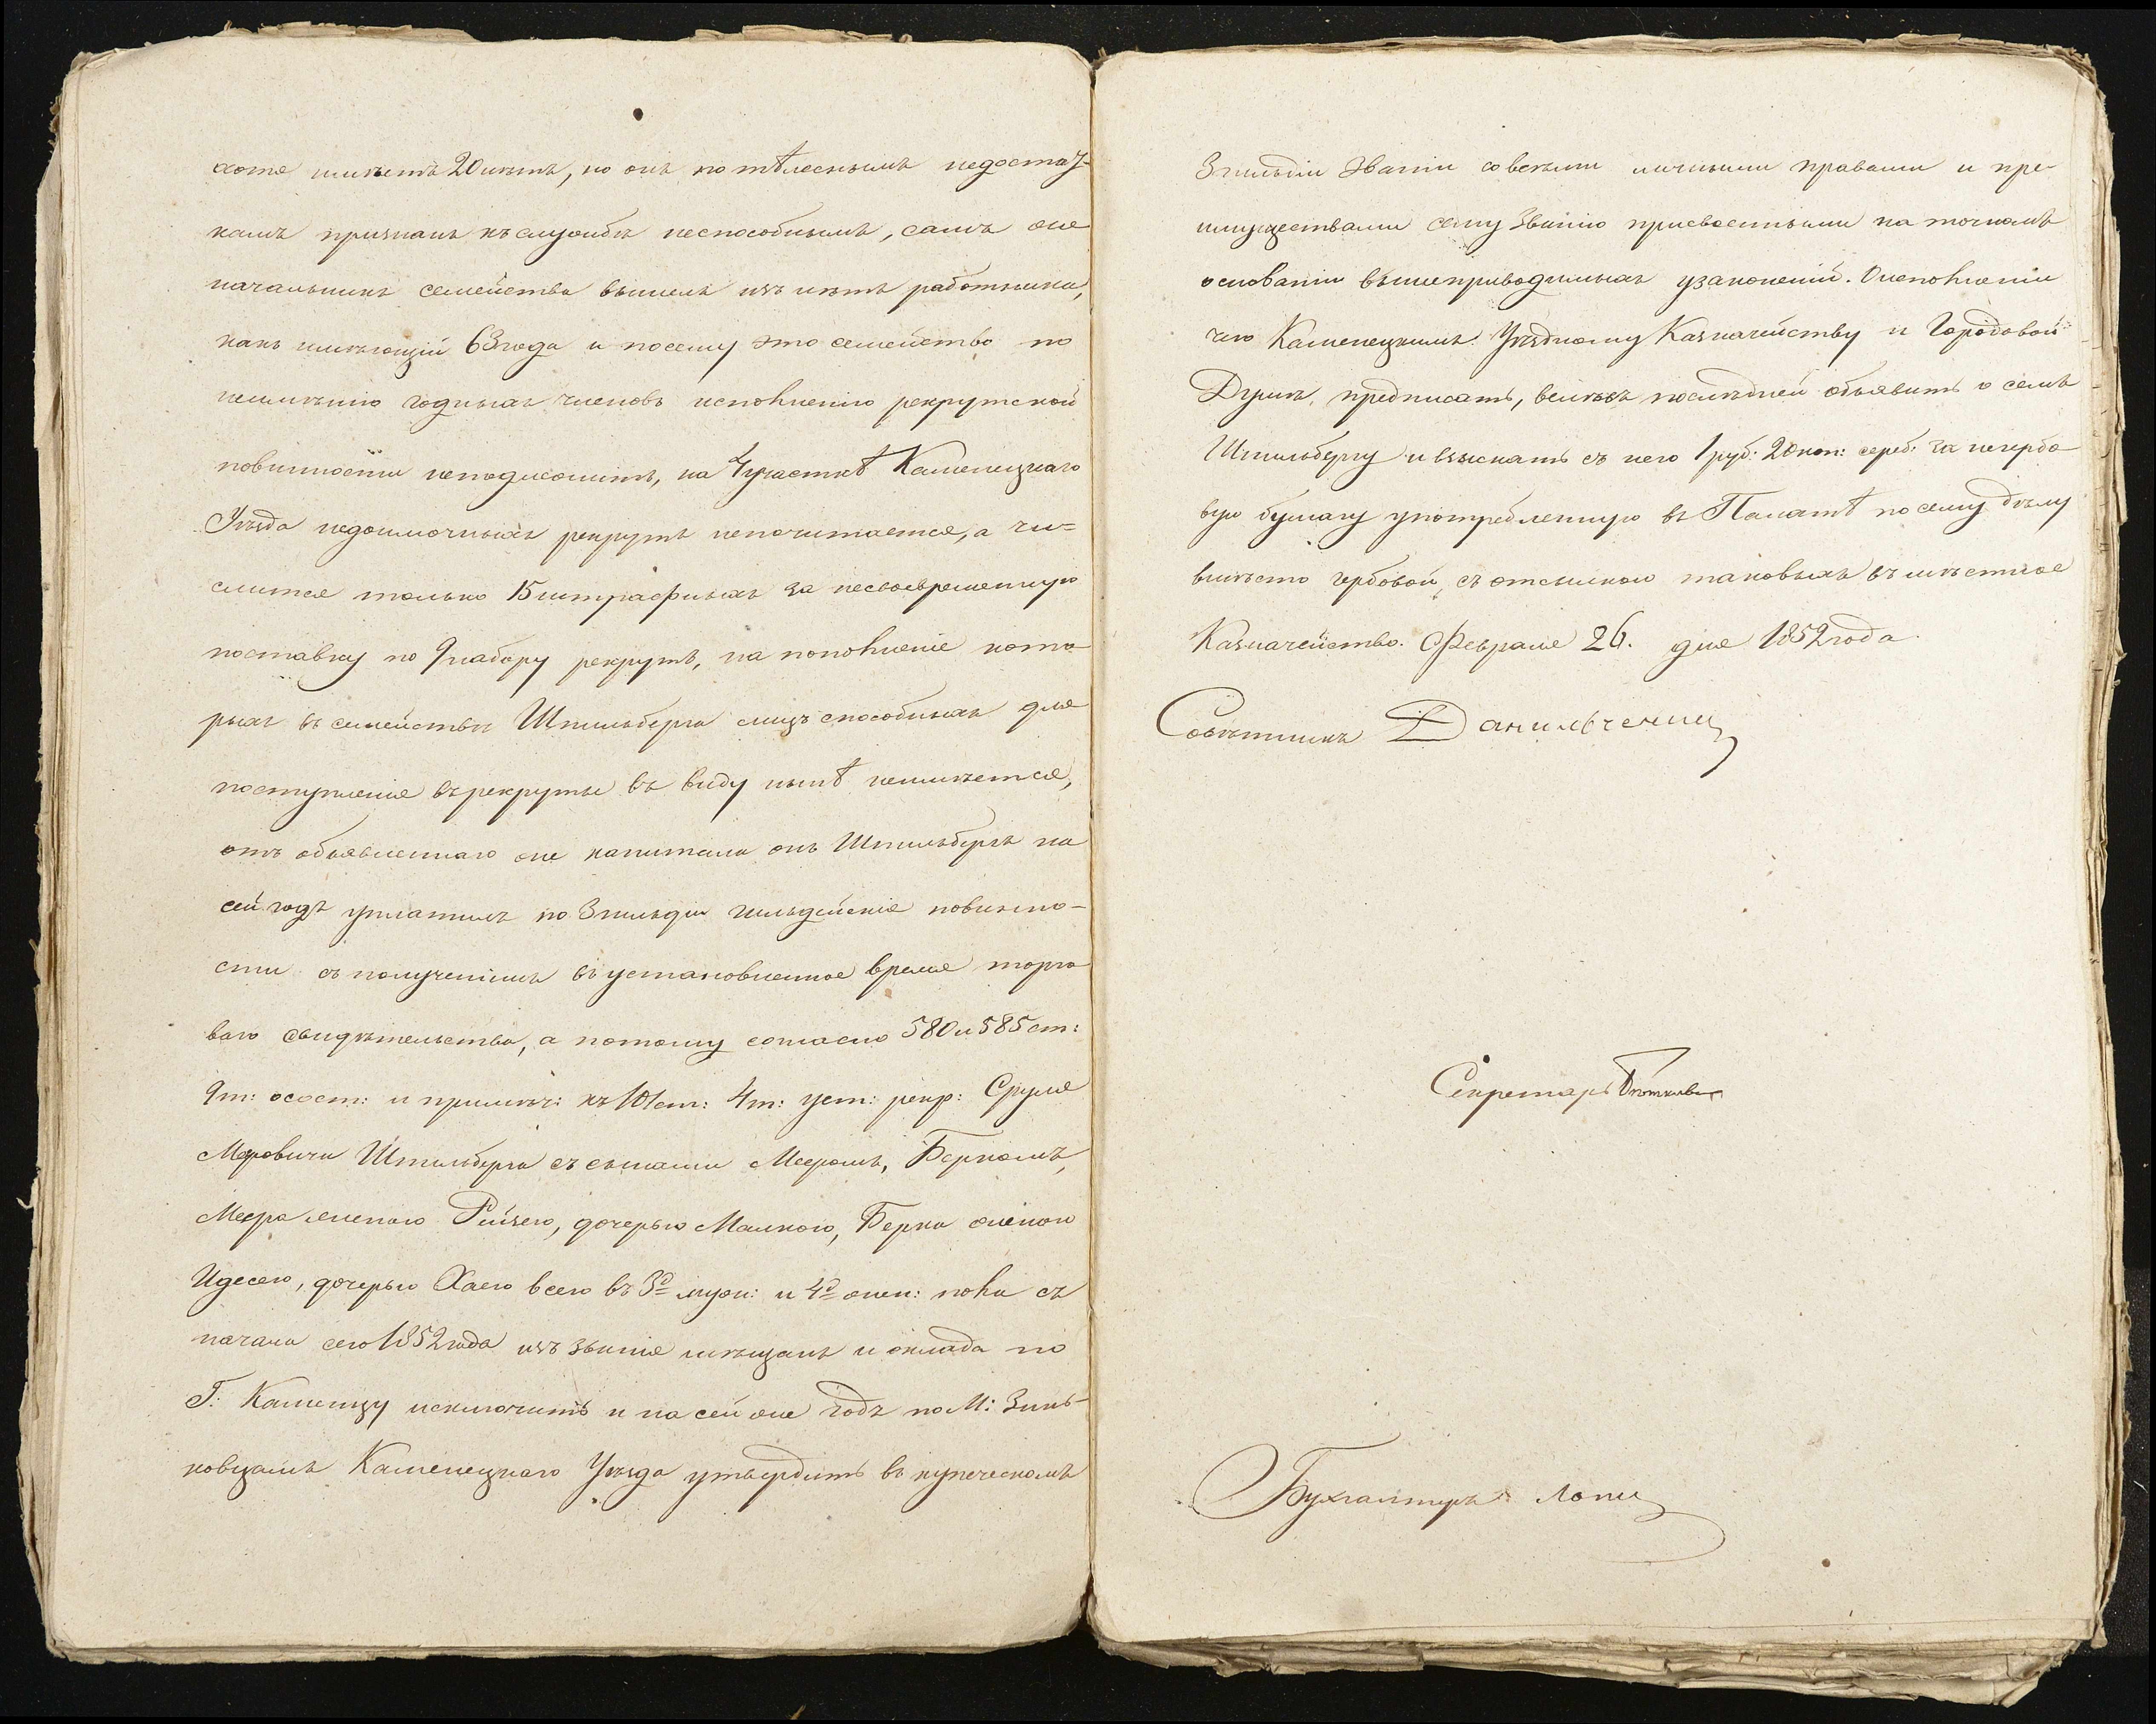 хотя имѣетъ 20 лѣтъ, но онъ по тѣлеснымъ недостат-
камъ признанъ къ службѣ неспособнымъ, самъ же
начальникъ семейства вышелъ изъ лѣтъ работника,
какъ имѣющій 63 года и посему это семейство по
неимѣнію годныхъ членовъ исполненію рекрутской
повинности неподлежитъ, на 4 участкѣ Каменецкаго
Уѣзда недоимочныхъ рекрутъ непочитается, а чи=
слится только 15 штрафныхъ за несвоевременную
поставку по 9 набору рекрутъ, на пополненіе кото-
рыхъ въ семействѣ Шпильберга лицъ способныхъ для
поступленія въ рекруты въ виду нынѣ неимѣется,
отъ объявленнаго же капитала онъ Шпильбергъ на
сей годъ уплатилъ по 3 гильдіи гильдейскія повинно-
сти съ полученіемъ въ установленное время торго
ваго свидѣтельства, а потому согласно 580 и 585 ст:
9 т: о сост: и примѣч: къ 101 ст: 4 т: уст: рекр: Сруля
Меровича Шпильберга съ сынами Мееромъ, Беркомъ,
Меера женою Рейзею, дочерью Малкою, Берка женою
Идесею, дочерью Хаею всего въ 3х муж: и 4х жен: пола съ
начала сего 1852 года изъ званія мѣщанъ и оклада по
Г: Каменцу исключить и на сей же годъ по М: Зинь-
ковцамъ Каменецкаго Уѣзда утвердить въ купеческомъ
3 гильдіи званіи со всѣми личными правами и пре-
имуществами сему званію присвоенными на точномъ
основаніи вышеприводимыхъ узаконеній. О исполненіи
чего Каменецкимъ Уѣздному Казначейству и Городовой
Думѣ, предписать, велѣвъ послѣдней объявить о семъ
Шпильбергу и взыскать съ него 1 руб: 20 коп: сереб: за негербо-
вую бумагу употребленную въ Палатѣ по сему дѣлу
вмѣсто гербовой, съ отсылкою таковыхъ въ мѣстное
Казначейство. Февраля 26. дня 1852 года.
Совѣтникъ Данильченко
Секретарь
Бухгалтеръ